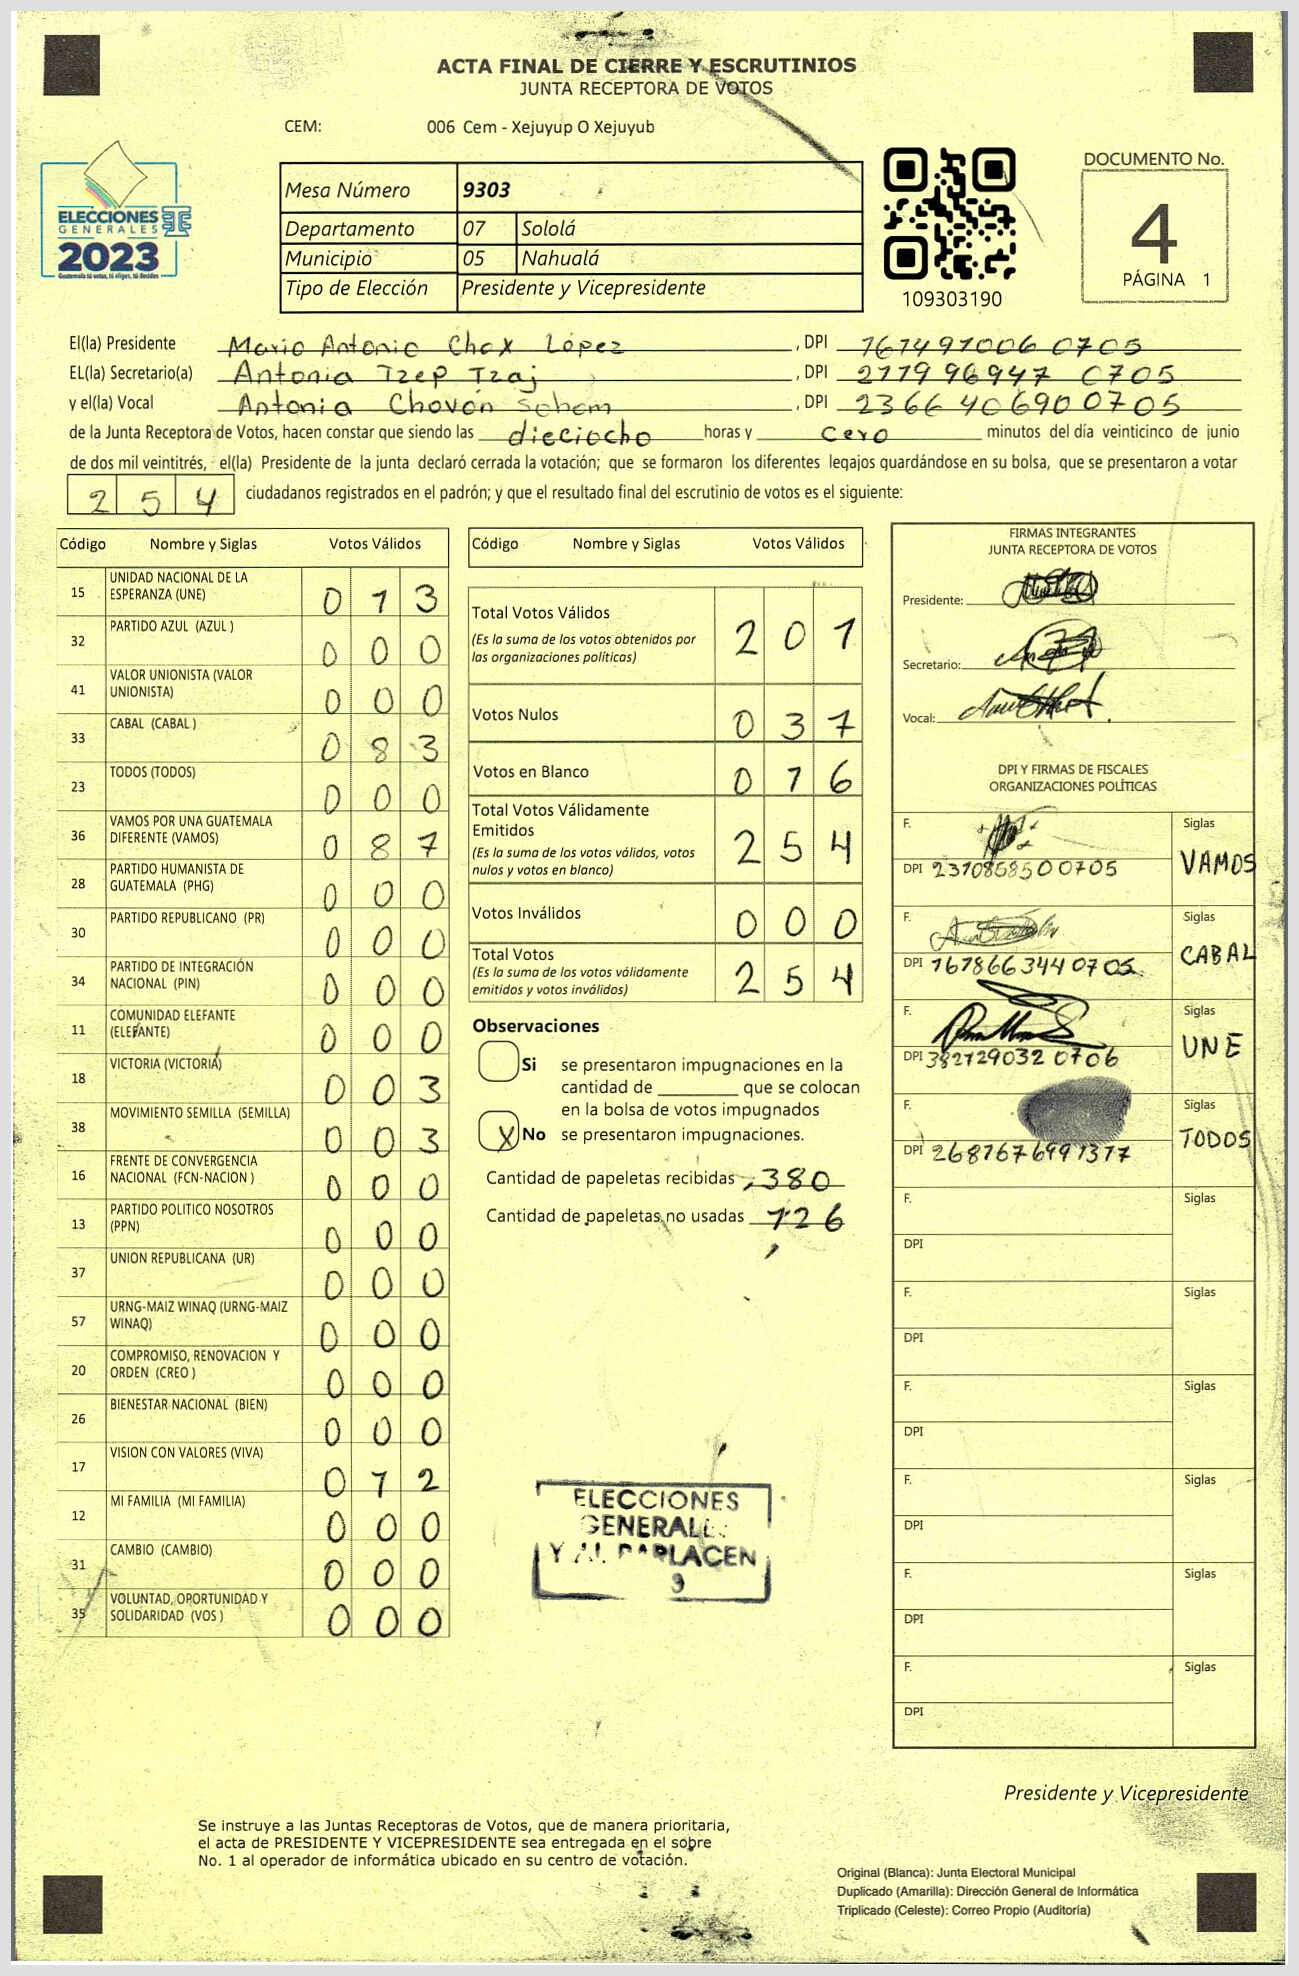 ACTA FINAL DE CIERRE Y ESCRUTINIOS
JUNTA RECEPTORA DE VOTOS
CEM: 006 Cem - Xejuyup O Xejuyub
ELECCIONES
GENERALES
2023
Guatemala tú votas, tú eliges, tú decides
Mesa Número 9303
Departamento 07 Sololá
Municipio 05 Nahualá
Tipo de Elección Presidente y Vicepresidente
109303190
DOCUMENTO No.
4
PÁGINA 1
El(la) Presidente Mario Antonio Chox López, DPI 167491006 0705
EL(la) Secretario(a) Antonia Tzep Tzaj, DPI 277996947 0705
y el(la) Vocal Antonia Chovón, DPI 2366 40690 0705
de la Junta Receptora de Votos, hacen constar que siendo las dieciocho horas y cero minutos del día veinticinco de junio
de dos mil veintitrés, el(la) Presidente de la junta declaró cerrada la votación; que se formaron los diferentes legajos quardándose en su bolsa, que se presentaron a votar
254 ciudadanos registrados en el padrón; y que el resultado final del escrutinio de votos es el siguiente:
Código Nombre y Siglas Votos Válidos
15 UNIDAD NACIONAL DE LA ESPERANZA (UNE) 0 1 3
32 PARTIDO AZUL (AZUL ) 0 0 0
41 VALOR UNIONISTA (VALOR UNIONISTA) 0 0 0
33 CABAL (CABAL ) 0 8 3
23 TODOS (TODOS) 0 0 0
36 VAMOS POR UNA GUATEMALA DIFERENTE (VAMOS) 0 8 7
28 PARTIDO HUMANISTA DE GUATEMALA (PHG) 0 0 0
30 PARTIDO REPUBLICANO (PR) 0 0 0
34 PARTIDO DE INTEGRACIÓN NACIONAL (PIN) 0 0 0
11 COMUNIDAD ELEFANTE (ELEFANTE) 0 0 0
18 VICTORIA (VICTORIA) 0 0 3
38 MOVIMIENTO SEMILLA (SEMILLA) 0 0 3
16 FRENTE DE CONVERGENCIA NACIONAL (FCN-NACION ) 0 0 0
13 PARTIDO POLITICO NOSOTROS (PPN) 0 0 0
37 UNION REPUBLICANA (UR) 0 0 0
57 URNG-MAIZ WINAQ (URNG-MAIZ WINAQ) 0 0 0
20 COMPROMISO, RENOVACION Y ORDEN (CREO ) 0 0 0
26 BIENESTAR NACIONAL (BIEN) 0 0 0
17 VISION CON VALORES (VIVA) 0 1 2
12 MI FAMILIA (MI FAMILIA) 0 0 0
31 CAMBIO (CAMBIO) 0 0 0
35 VOLUNTAD, OPORTUNIDAD Y SOLIDARIDAD (VOS ) 0 0 0
Código Nombre y Siglas Votos Válidos
Total Votos Válidos 2 0 1
(Es la suma de los votos obtenidos por
las organizaciones políticas)
Votos Nulos 0 3 7
Votos en Blanco 0 1 6
Total Votos Válidamente
Emitidos 2 5 4
(Es la suma de los votos válidos, votos
nulos y votos en blanco)
Votos Inválidos 0 0 0
Total Votos 2 5 4
(Es la suma de los votos válidamente
emitidos y votos inválidos)
Observaciones
Si se presentaron impugnaciones en la
cantidad de ________ que se colocan
en la bolsa de votos impugnados
X No se presentaron impugnaciones.
Cantidad de papeletas recibidas 380
Cantidad de papeletas no usadas 126
ELECCIONES
GENERAL
PARLACEN
FIRMAS INTEGRANTES
JUNTA RECEPTORA DE VOTOS
Presidente:
Secretario:
Vocal:
DPI Y FIRMAS DE FISCALES
ORGANIZACIONES POLÍTICAS
F. Siglas
DPI 231085850 0705 VAMOS
F. Siglas
DPI 167866344 0705 CABAL
F. Siglas
DPI 382729032 0706 UNE
F. Siglas
DPI 2687676991317 TODOS
F. Siglas
DPI
F. Siglas
DPI
F. Siglas
DPI
F. Siglas
DPI
F. Siglas
DPI
F. Siglas
DPI
Presidente y Vicepresidente
Se instruye a las Juntas Receptoras de Votos, que de manera prioritaria,
el acta de PRESIDENTE Y VICEPRESIDENTE sea entregada en el sobre
No. 1 al operador de informática ubicado en su centro de votación.
Original (Blanca): Junta Electoral Municipal
Duplicado (Amarilla): Dirección General de Informática
Triplicado (Celeste): Correo Propio (Auditoría)